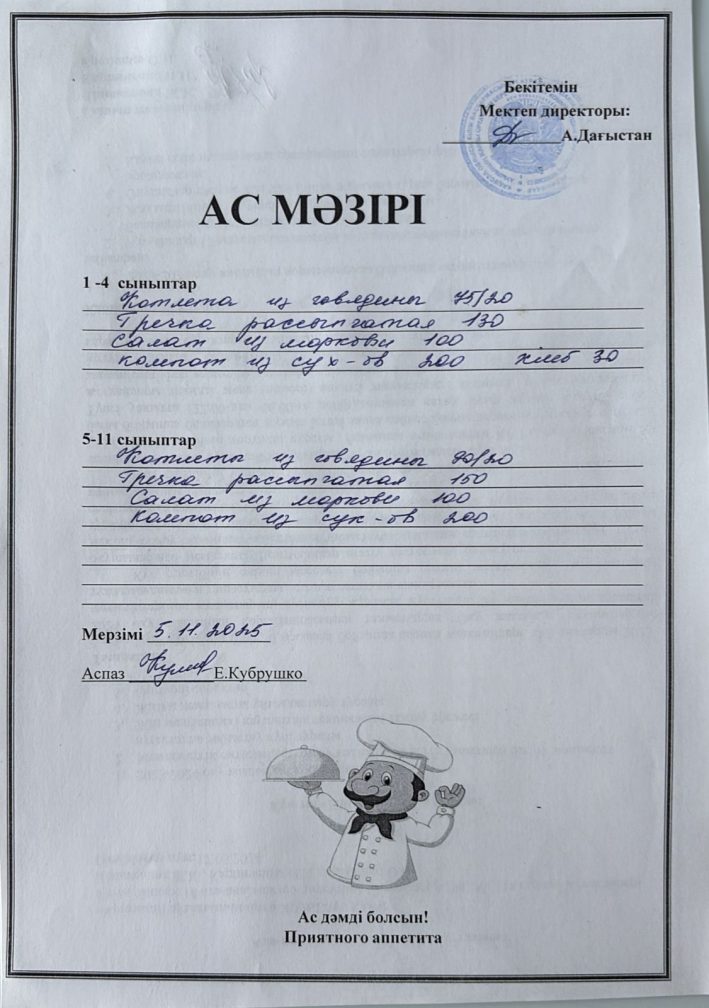 Бекітемін
Мектеп директоры:
А.Дағыстан
АС МӘЗІРІ
1 -4 сыныптар
Котлета из говядины 75/20
Гречка рассыпчатая 130
Салат из моркови 100
компот из сух-ов 200 хлеб 30
5-11 сыныптар
Котлеты из говядины 90/20
Гречка рассыпчатая 150
Салат из моркови 100
Компот из сух-ов 200
Мерзімі 5.11.2025
Аспаз Е.Кубрушко
Ас дәмді болсын!
Приятного аппетита